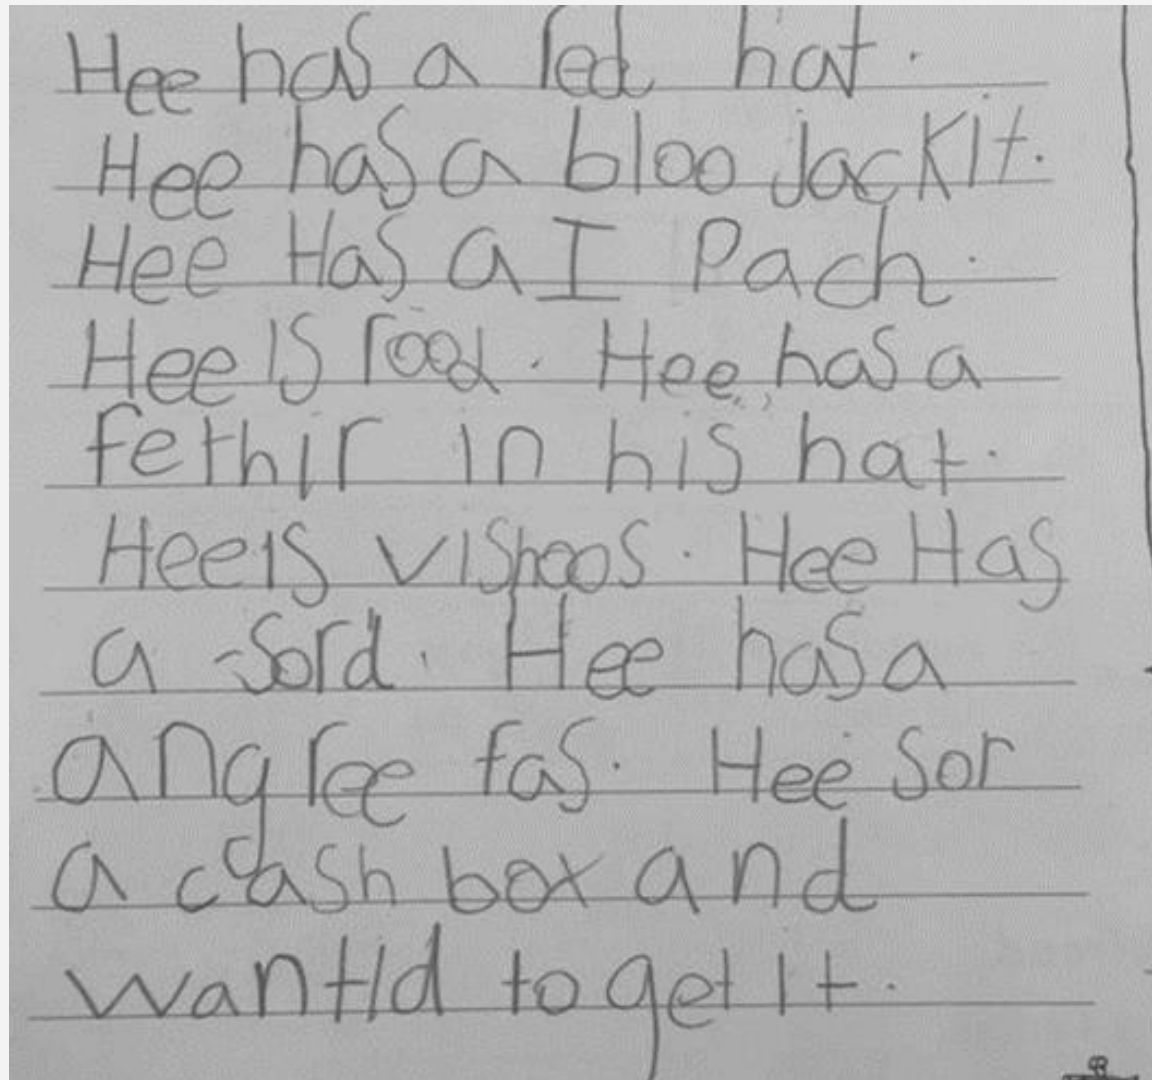 Hee has a red hat.
Hee has a bloo jackit.
Hee Has a I Pach.
Hee is rood. Hee has a
fethir in his hat.
Hee is vishoos. Hee Has
a sord. Hee has a
angree fas. Hee sor
a cash box and
wantid to get it.